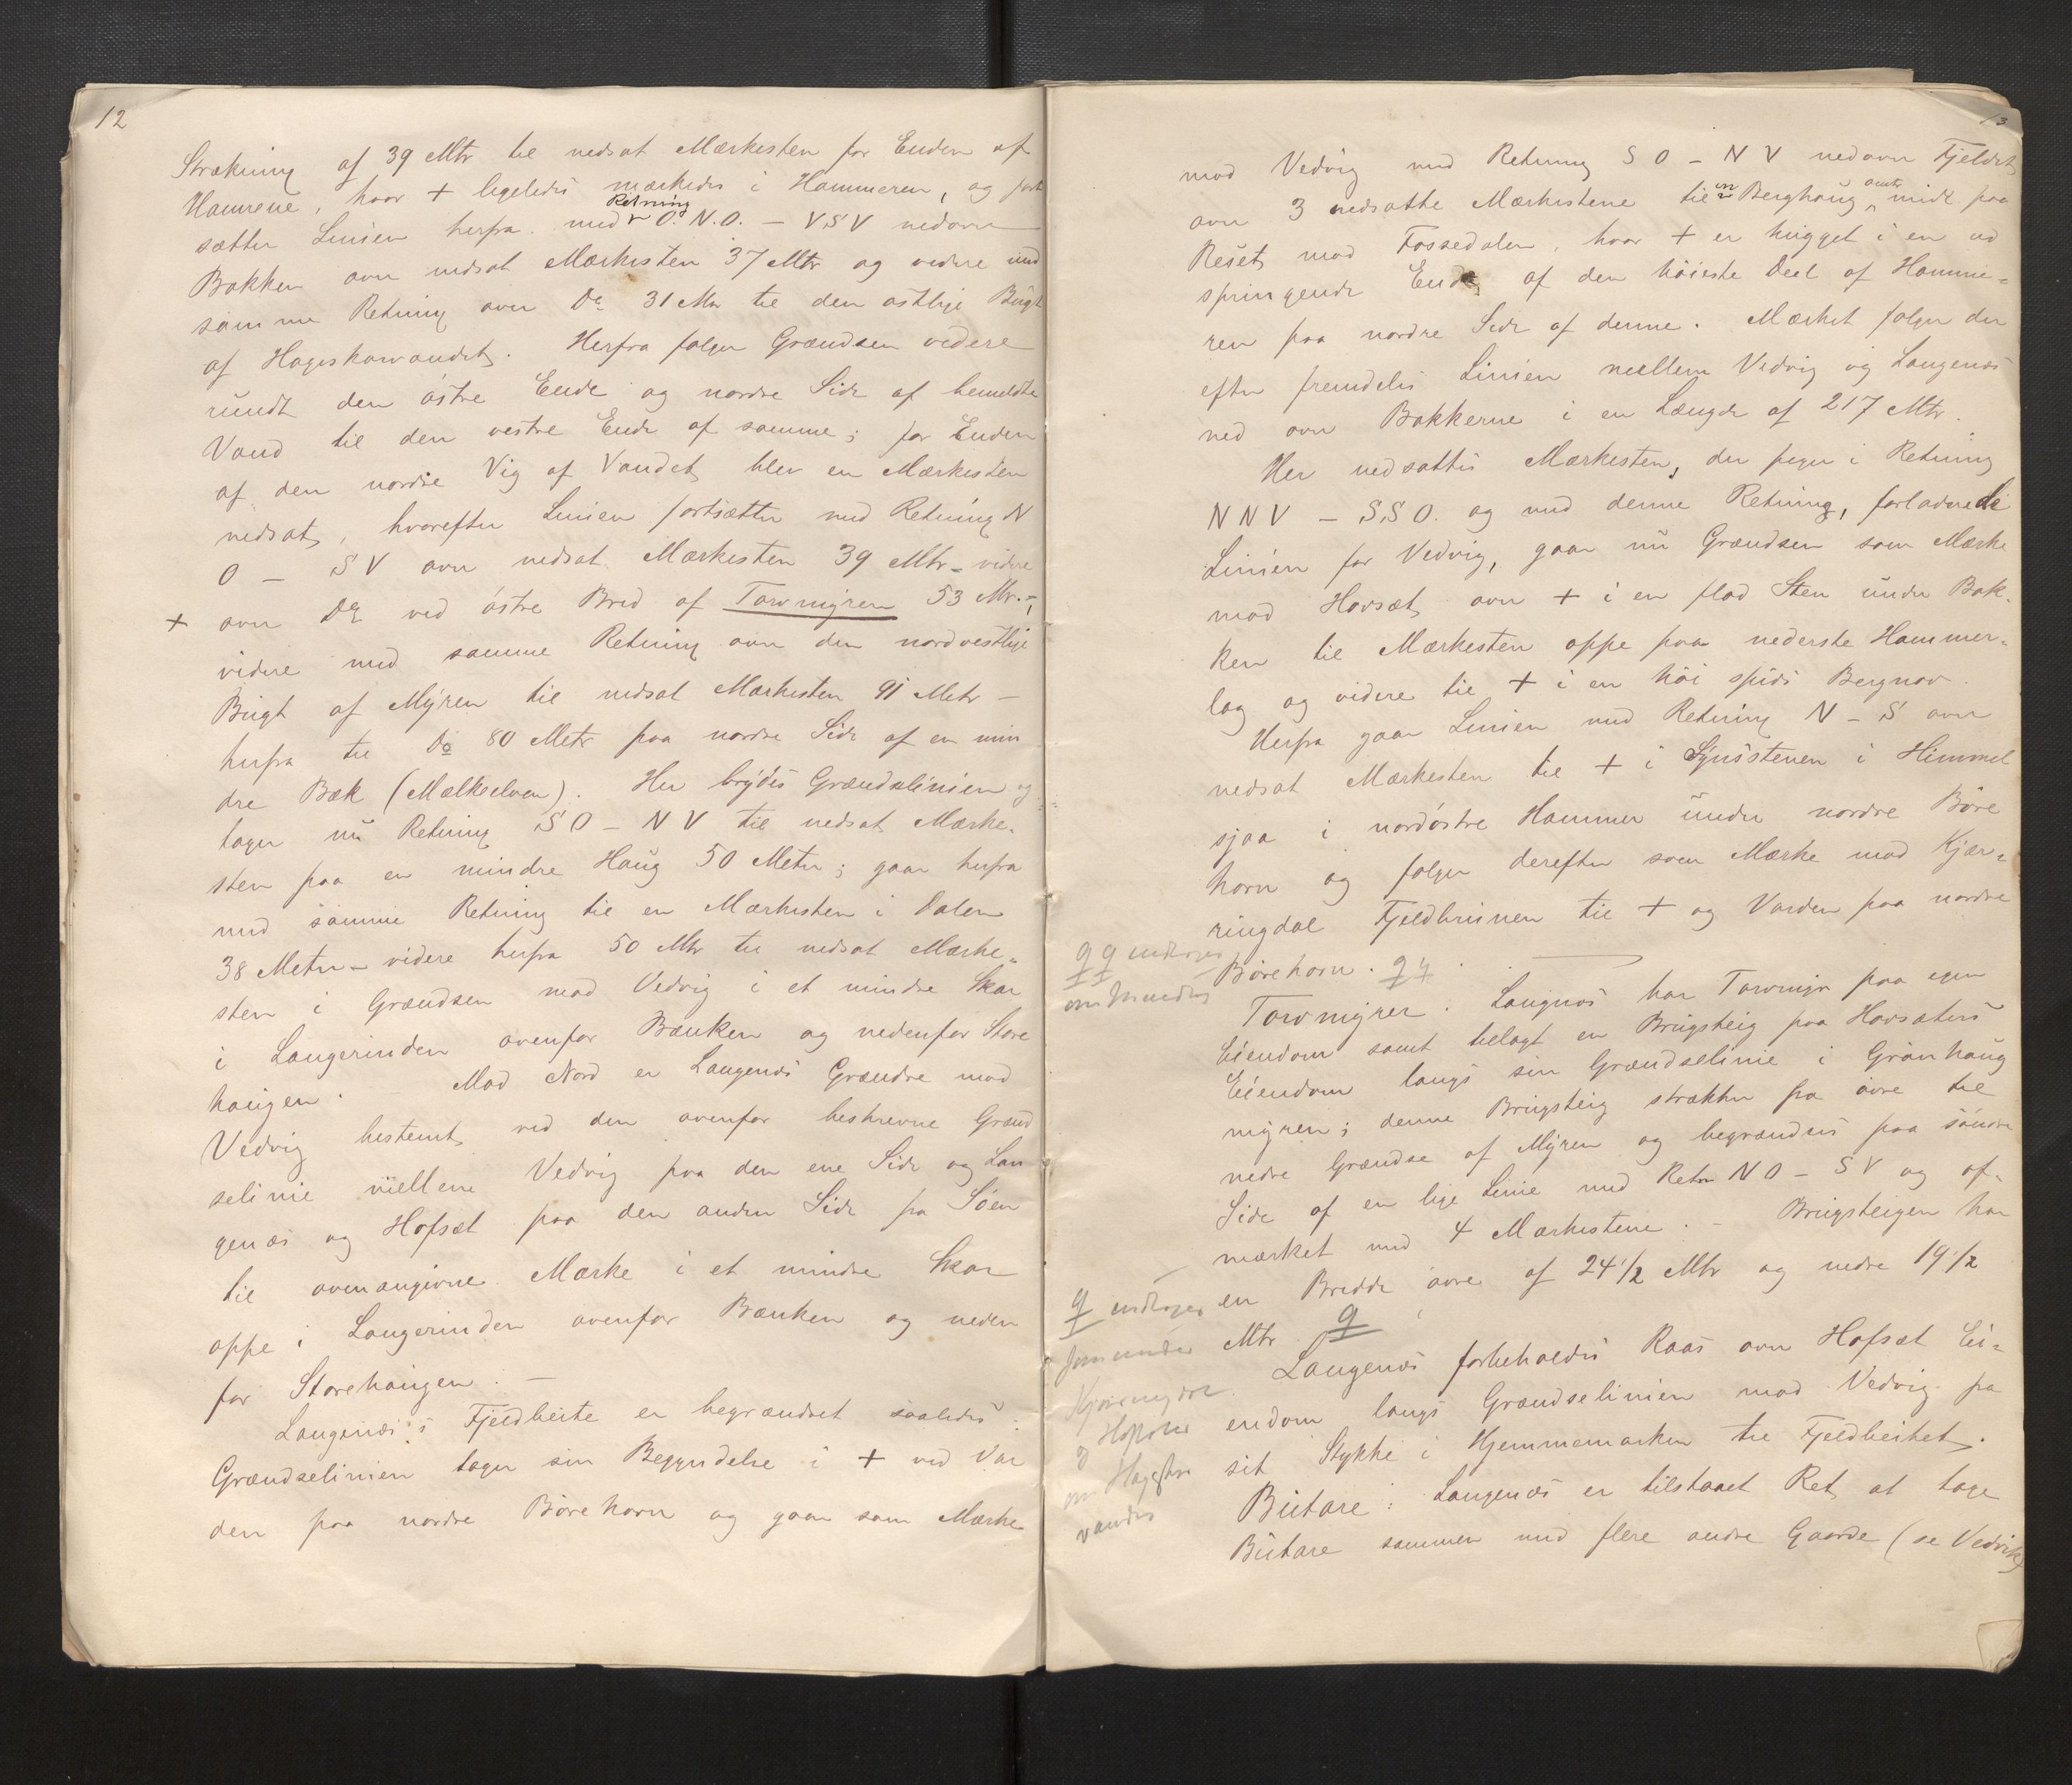 12
Strækning af 39 Mtr til nedsat Mærkesten for Enden af
Hamrene, hvor + ligeledes mærkedes i Hammeren, og fort
sætter Linien herfra med Retning O.N.O. – VSV nedover
Bakken over nedsat Mærkesten 37 Mtr og videre med
samme Retning over Do 31 Mtr til den østlige Bugt
af Hageskarvandet. Herfra følger Grændsen videre
rundt den østre Ende og nordre Side af bemeldte
Vand til den vestre Ende af samme; for Enden
af den nordre Vig af Vandet blev en Mærkesten
nedsat, hvorefter Linien fortsætter med Retning N
O – SV over nedsat Mærkesten 39 Mtr – videre
+ over Do ved østre Bred af Torvmyren 53 Mtr. –,
videre med samme Retning over den nordvestlige
Bugt af Myren til nedsat Mærkesten 91 Metr –
herfra til Do 80 Metr paa nordre Side af en min
dre Bæk (Mælkeelven). Her brydes Grændselinien og
tager nu Retning SO – NV til nedsat Mærke-
sten paa en mindre Haug 50 Meter; gaar herfra
med samme Retning til en Mærkesten i Dalen
38 Meter – videre herfra 50 Mtr til nedsat Mærke-
sten i Grændsen mod Vedvig i et mindre Skar
i Langerinden ovenfor Bænken og nedenfor Store
haugen. Mod Nord er Langenæs Grændse mod
Vedvig bestemt ved den ovenfor beskrevne Grænd
selinie mellem Vedvig paa den ene Side og Lan
genæs og Hofsæt paa den anden Side fra Søen
til ovenangivne Mærke i et mindre Skar
oppe i Langerinden ovenfor Bænken og neden
for Storehaugen. –
Langenæs's Fjeldbeite er begrændset saaledes:
Grændselinien tager sin Begyndelse i + ved Var
den paa nordre Børehorn og gaar som Mærke
13
mod Vedvig med Retning SO – NV nedover Fjeldet
over 3 nedsatte Mærkestene til en Berghaug omtr. midt paa
Reset mod Fossedalen, hvor + er hugget i en ud
springende Ende af den høieste Deel af Hamme-
ren paa nordre Side af denne. Mærket følger der
efter fremdeles Linien mellem Vedvig og Langenæs
ned over Bakkerne i en Længde af 217 Mtr.
Her nedsattes Mærkesten, der peger i Retning
NNV – SSO. og med denne Retning, forladende
Linien for Vedvig, gaar nu Grændsen som Mærke
mod Hovsæt over + i en flad Sten under Bak-
ken til Mærkesten oppe paa nederste Hammer-
lag og videre til + i en høi spids Bergnov.
Herfra gaar Linien med Retning N – S over
nedsat Mærkesten til + i Synsstenen i Himmel
sjaa i nordøstre Hammer under nordre Børe
horn og følger derefter som Mærke mod Kjær-
ringdal Fjeldbrunen til + og Varden paa nordre
Børehorn. q q
q q indtages
Torvmyrer. Langnæs har Torvmyr paa egen
Eiendom samt tillagt en Brugsteig paa Hovsæters
Eiendom langs sin Grændselinie i Grønhaug
myren; denne Brugsteig strækker fra øvre til
nedre Grændse af Myren og begrændses paa søndre
Side af en lige Linie med Retn NO – SV og af-
mærket med 4 Mærkestene. – Brugsteigen har
en Bredde øvre af 24 1/2 Mtr og nedre 19 1/2
Mtr. q
q indtages
Langenæs forbeholdes Raas over Hofsæt Ei-
endom langs Grændselinien mod Vedvig fra
sit Stykke i Hjemmemarken til Fjeldbeitet.
vandet
Butare: Langenæs er tilstaaet Ret at tage
Butare sammen med flere andre Gaarde (se Vedvik)